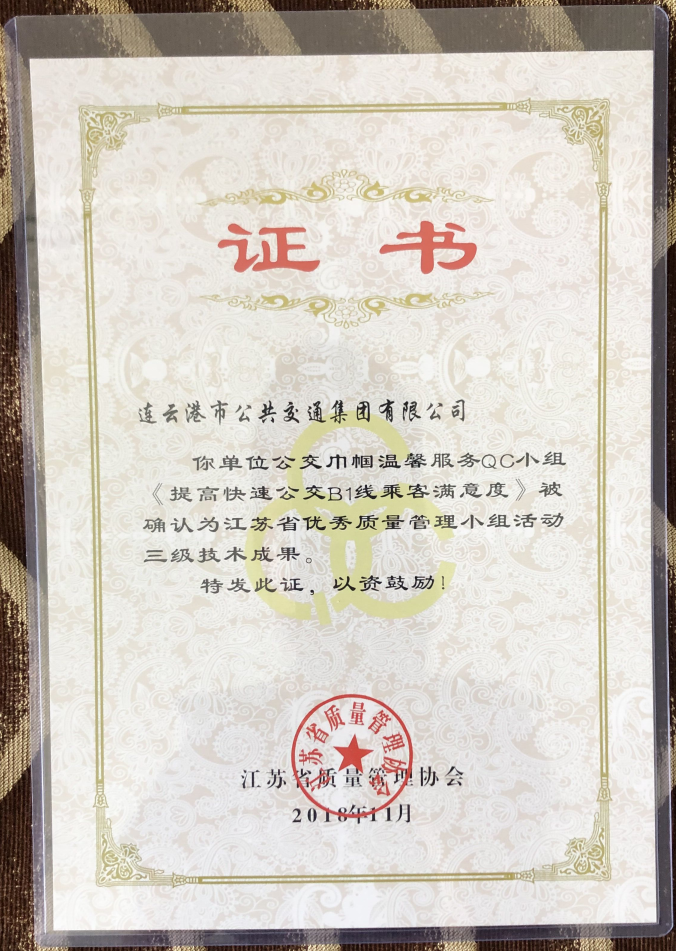 证 书
连云港市公共交通集团有限公司
你单位公交巾帼温馨服务QC小组
《提高快速公交B1线乘客满意度》被
确认为江苏省优秀质量管理小组活动
三级技术成果。
特发此证，以资鼓励！
江苏省质量管理协会
江苏省质量管理协会
2018年11月